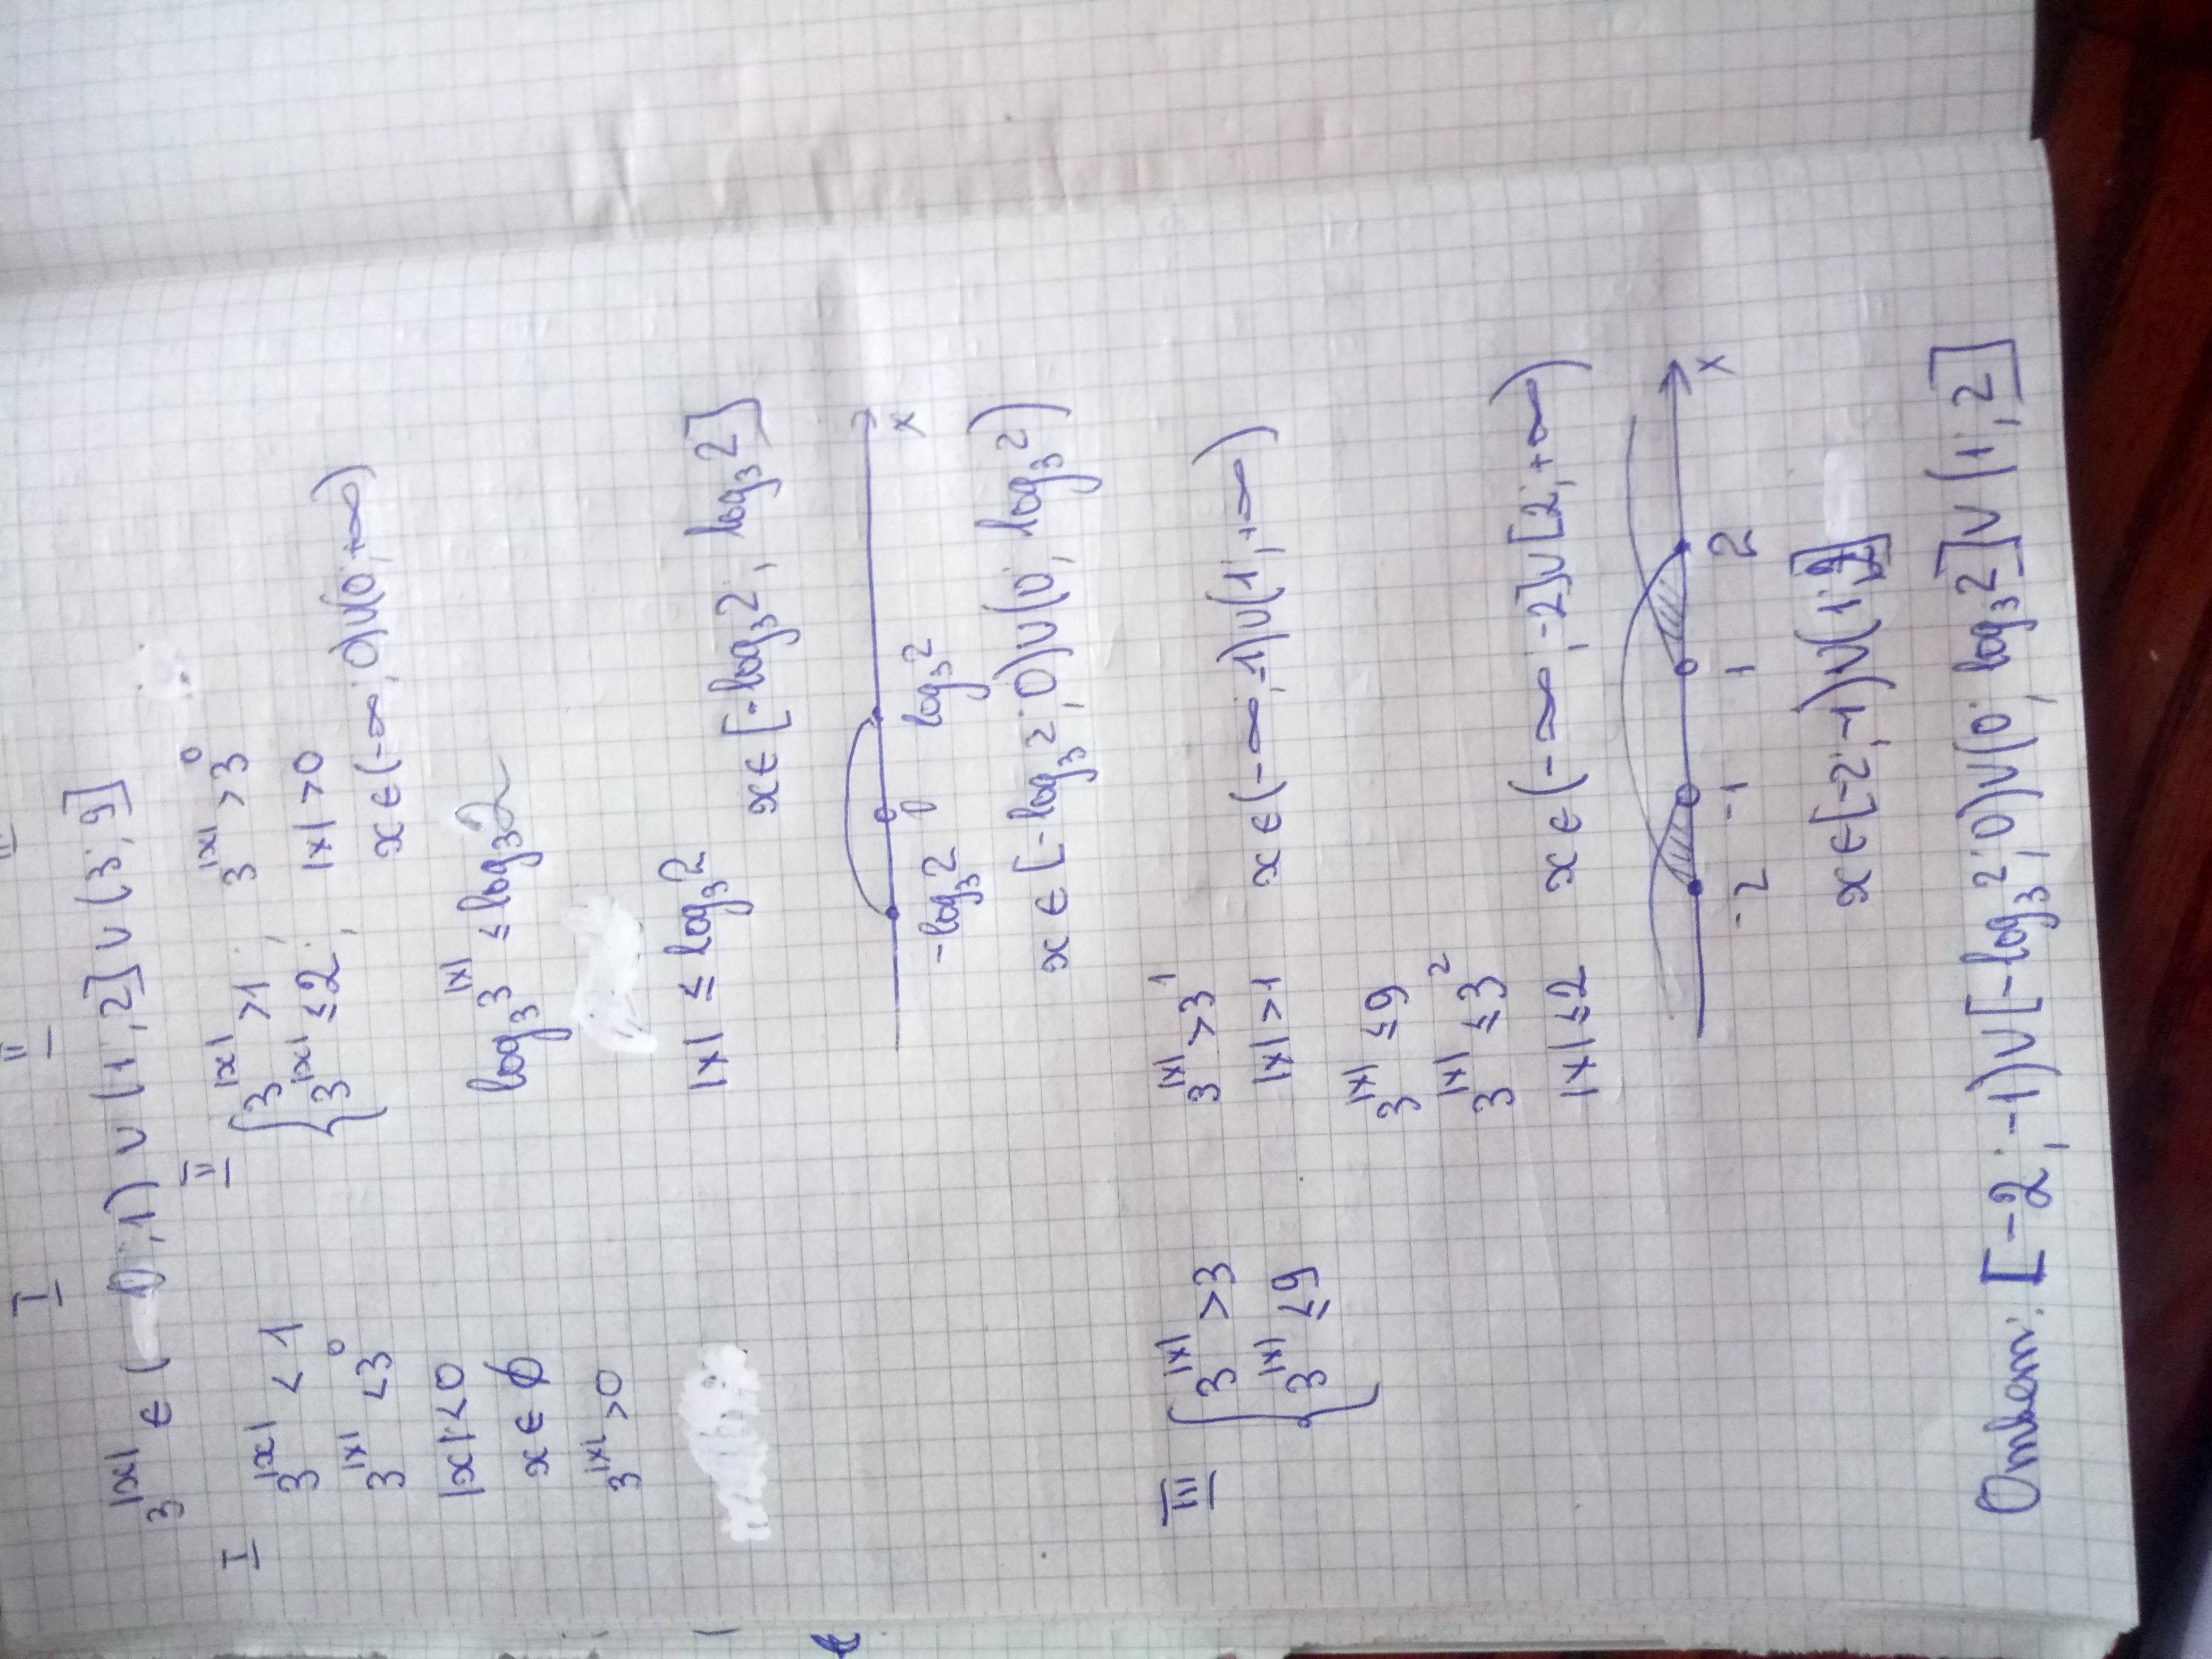 I II III
3^|x| ∈ (0; 1) ∪ (1; 2] ∪ (3; 9]
I
3^|x| < 1
3^|x| < 3^0
|x| < 0
x ∈ ∅
3^|x| > 0
II
{ 3^|x| > 1; 3^|x| > 3^0
3^|x| ≤ 2; |x| > 0
x ∈ (-∞; 0) ∪ (0; +∞)
log₃3^|x| ≤ log₃2
|x| ≤ log₃2
x ∈ [-log₃2; log₃2]
-log₃2 0 log₃2 x
x ∈ [-log₃2; 0) ∪ (0; log₃2)
III
{ 3^|x| > 3 3^|x| > 3^1
3^|x| ≤ 9 |x| > 1 x ∈ (-∞; -1) ∪ (1; +∞)
3^|x| ≤ 9
3^|x| ≤ 3^2
|x| ≤ 2 x ∈ (-∞; -2] ∪ [2; +∞)
-2 -1 1 2 x
x ∈ [-2; -1) ∪ (1; 2]
Ответ: [-2; -1) ∪ [-log₃2; 0) ∪ (0; log₃2] ∪ (1; 2]